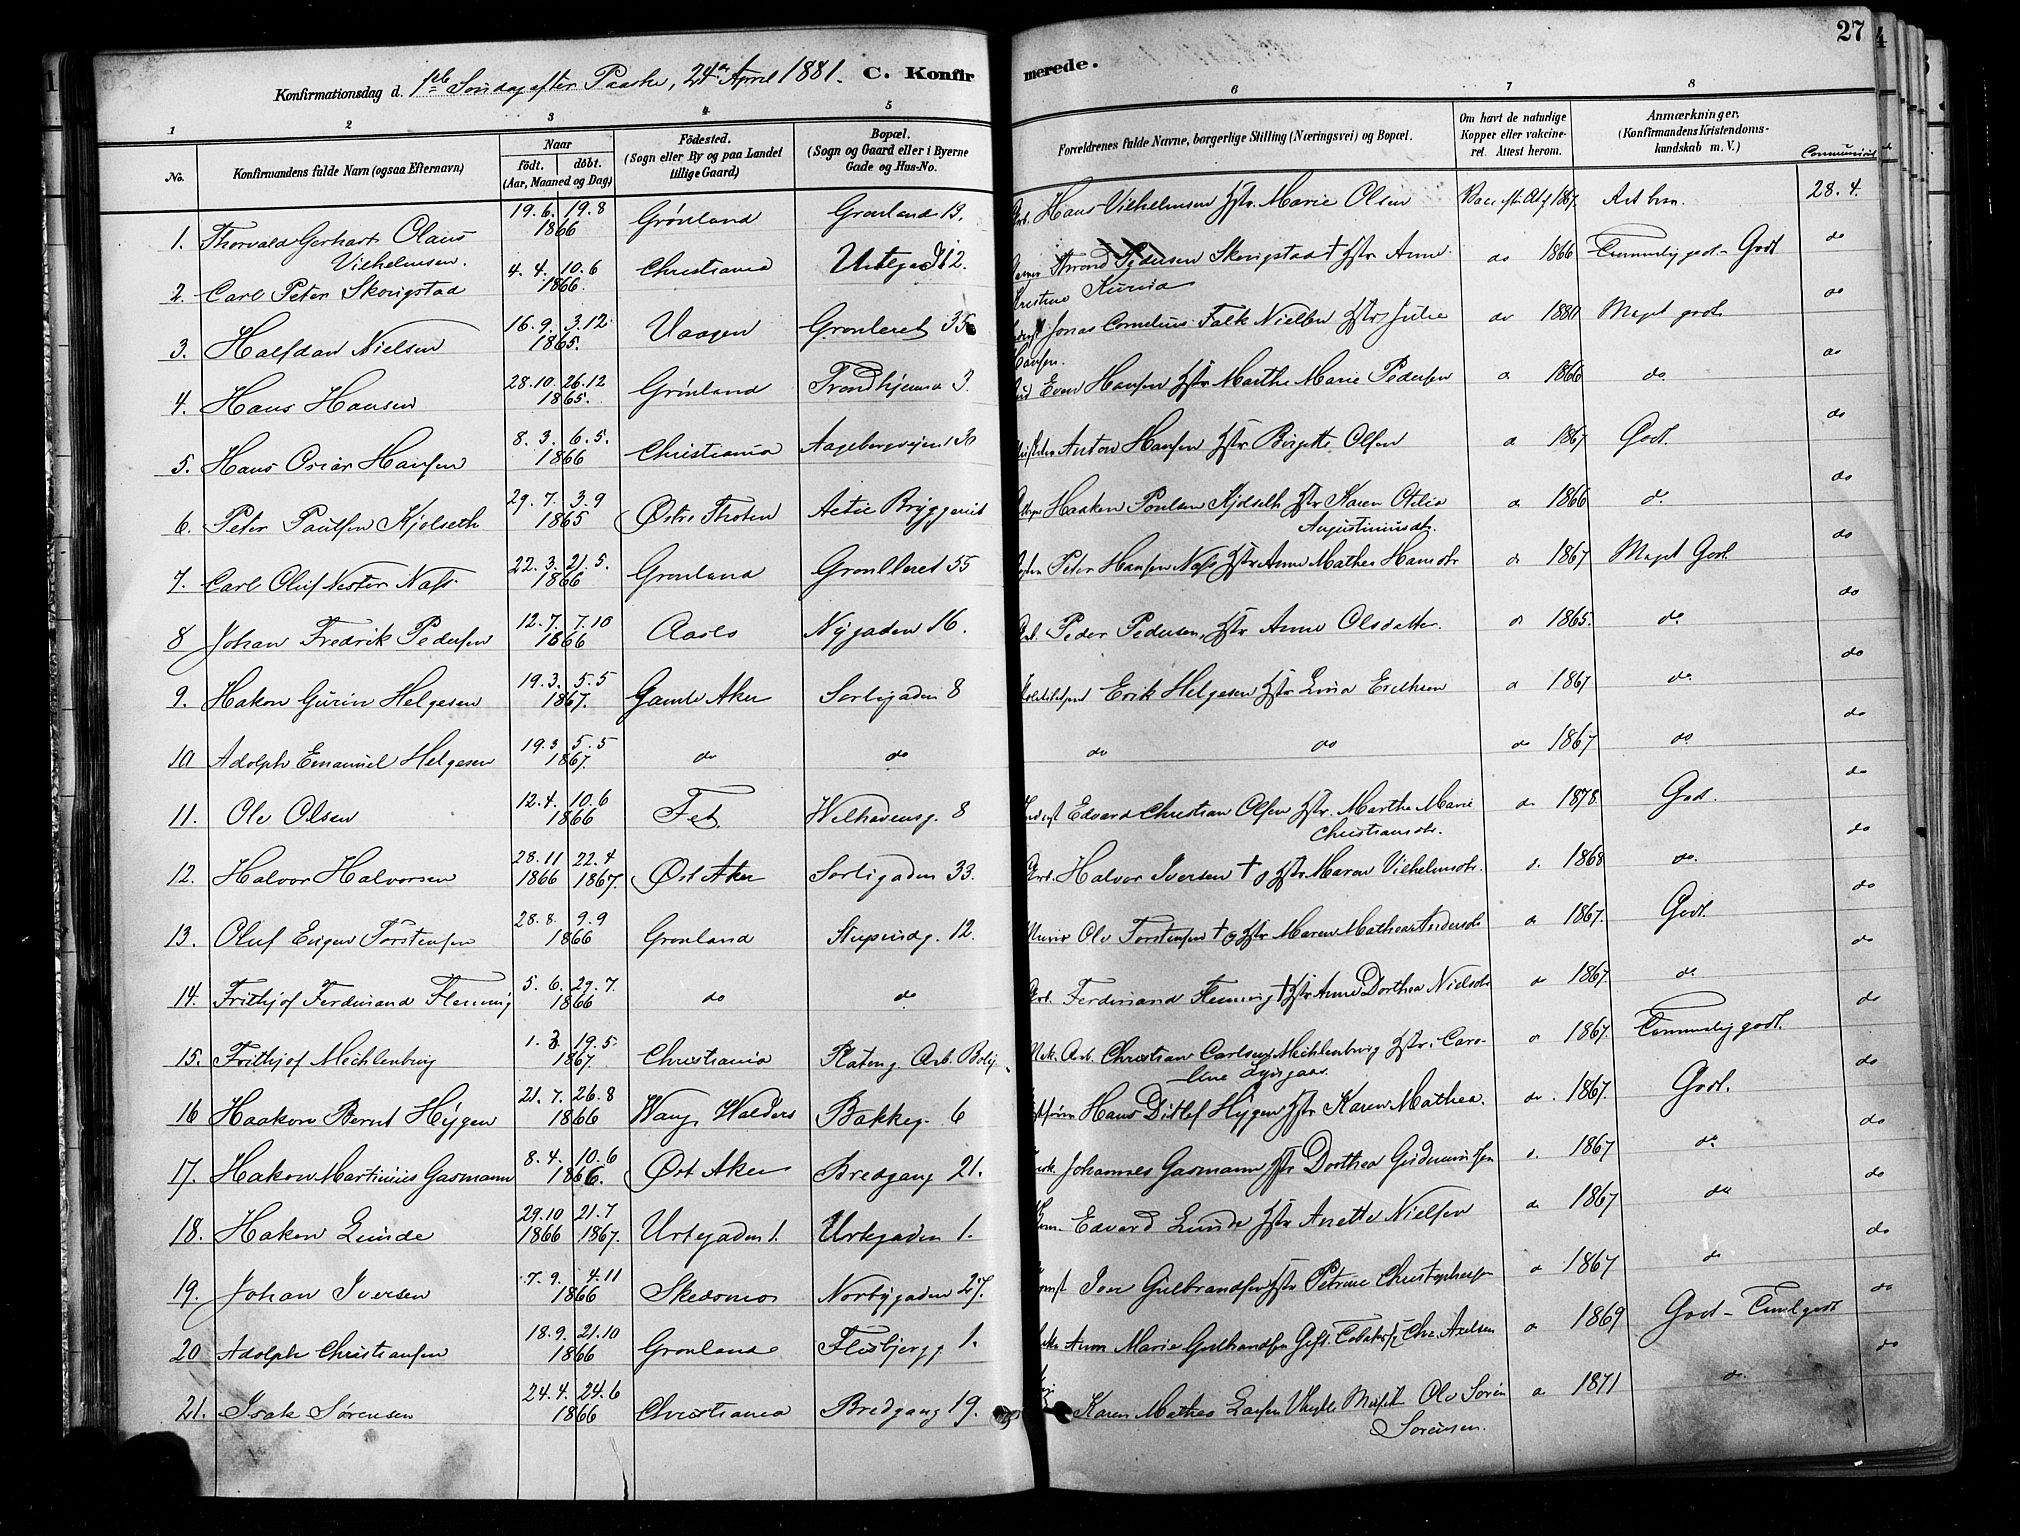 27
Konfirmationsdag d. 1ste Søndag efter Paaske, 24de April 1881. C. Konfirmerede.
1 2 3 4 5 6 7 8
No. Konfirmandens fulde Navn (ogsaa Efternavn) Naar født. døbt. (Aar, Maaned og Dag) Fødested. (Sogn eller By og paa Landet tillige Gaard) Bopæl. (Sogn og Gaard eller i Byerne Gade og Hus-No. Forældrenes fulde Navne, borgerlige Stilling (Næringsvei) og Bopæl. Om havt de naturlige Kopper eller vakcineret. Attest herom. Anmærkninger, (Konfirmandens Kristendomskundskab m. V.)
1. Thorvald Gerhart Olaus Vilhelmsen. 19.6. 19.8 1866 Grønland Grønland 13. Hans Vilhelmsen Hstr. Marie Olsen 1867 28.4.
2. Carl Peter Skorigstad 4.4. 10.6 1866. Christiania Urtegd 12. Trond Pedersen Skorigstad † Hstr Anne Kristine do 1866 Temmelig godt - Godt do
3. Halfdan Nielsen 16.9. 3.12. 1865. Vaagen Grønleret 35 Jonas Cornelius Falk Nielsen Hstr Julie Hansen. do 1880 Meget godt. do
4. Hans Hansen 28.10. 26.12 1865. Grønland Trondhjemsv 3. Even Hansen Hstr Marthe Marie Pedersen do 1866 do do
5. Hans Oscar Hansen 8.3. 6.5. 1866 Christiania Aagebergveien 30 Anton Hansen Hstr Birgitte Olsen do 1867 Godt. do
6. Peter Paulsen Kjølseth 29.7. 3.9 1865 Østre Thoten Actie Bryggeriet Haaken Poulsen Kjølseth Hstr Karen Otilie Augustinusdtr. do 1866 do do
7. Carl Oluf Nestor Næss 22.3. 21.5. 1866 Grønland Grønlleret 55 Peter Hansen Næss Hstr Anne Mathea Hansdtr do 1867 Meget Godt do
8 Johan Fredrik Pedersen 12.7. 7.10 1866 Aaslo Nygaden 16. Arb. Peder Pedersen, Hstr Anne Olsdatter. do 1865. do do
9. Hakon Gurin Helgesen 19.3. 5.5 1867. Gamle Aker Sorligaden 8 Erik Helgesen Hstr Lina Erichsen do 1867 do do
10 Adolph Emanuel Helgesen 19.3 5.5 1867. do do do do do 1867 do do
11. Ole Olsen 12.4. 10.6 1866 Fet. Welhavensg. 8 Edvard Christian Olsen Hstr. Marthe Marie Christiansdtr. do 1878. God. do
12. Halvor Halvorsen 28.11 1866 22.4 1867. Øst Aker Sorligaden 33. Arb. Halvor Iversen † og Hstr Maren Vilhelmsdtr. do 1868 do. do
13. Oluf Eugen Torstensen 28.8. 9.9 1866 Grønland Stupindg. 12. Ole Torstensen † og Hstr Maren Mathea Andersdtr do 1867. Godt. do
14. Frithjof Ferdinand Fleming 5.6. 29.7. 1866 do do Arb. Ferdinand Fleming † Hstr Anne Dorthea Nielsdtr do 1867. do do
15. Frithjof Mechlenburg 1.3. 19.5 1867. Christiania Plateng. Arb. Bolig. Christian Carlsen Mechlenburg Hstr. Caroline do 1867. Temmelig godt. do
16 Haakon Bernt Hygen 21.7. 26.8 1866 Wang, Walders Bakkeg. 6 Hans Ditlef Hygen Hstr Karen Mathea. do. 1867. Godt. do
17. Hakon Martinius Gasmann 8.4. 10.6 1866. Øst Aker Bredgang 21. Johannes Gasmann Hstr Dorthea do. 1867 do do
18. Hakon Lunde 29.10 1866 21.7 1867. Urtegaden 1. Urtegaden 1. Edvard Lunde Hstr Anette Nielsen do 1867 do do
19. Johan Iversen 7.9. 4.11 1866 Skedsmo Norbygaden 27. Iver Gulbrandsen Hstr Petrine Christophersen do 1867 do do
20 Adolph Christiansen 18.9. 21.10 1866 Grønland Flisbjergg 1. Anne Marie Gulbrandsen Gift Chr. Axelsen do 1869 God - Teml godt do
21. Isak Sørensen 24.4. 24.6 1866 Christiania Bredgang 19. Karen Mathea Larsen Ole Søren Sørensen. do 1871 do. do